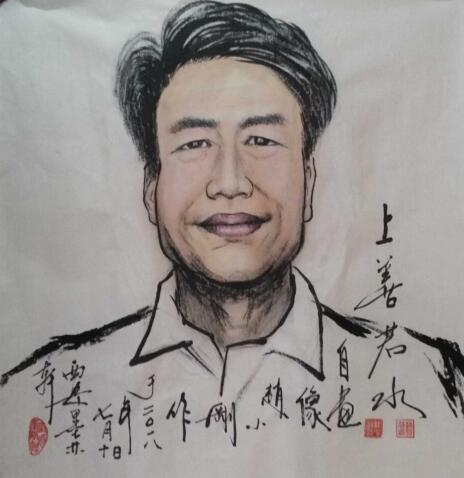 上善若水
自画像
赵小刚作
于二〇一八
年七月十日
西关墨艺轩